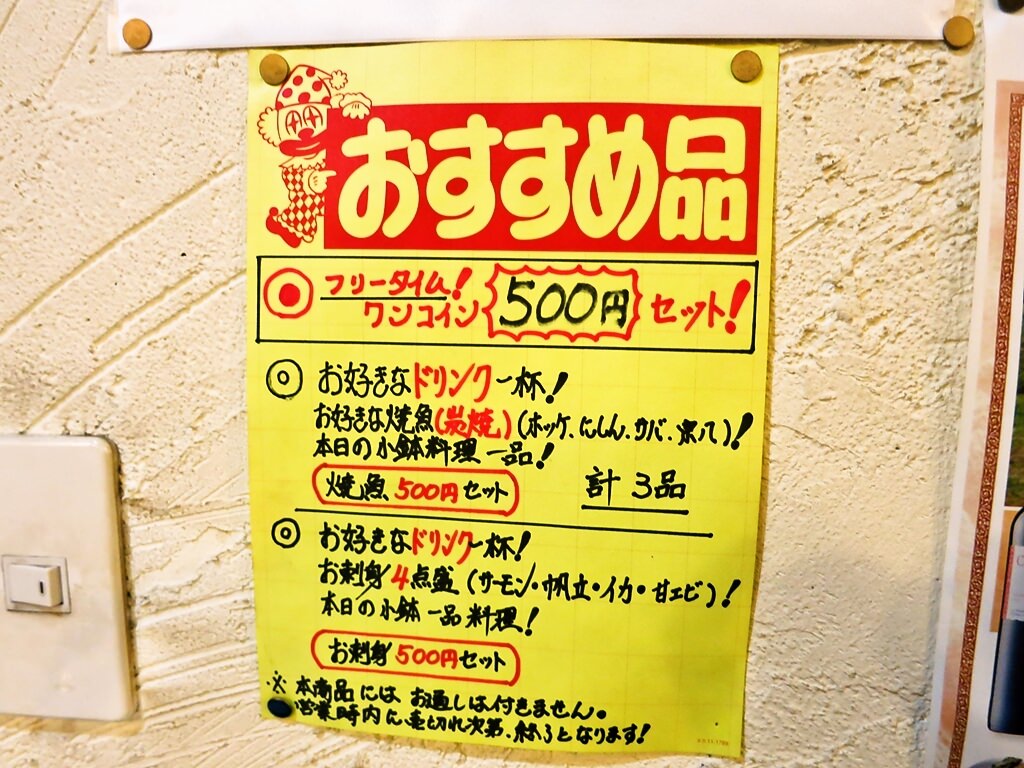 おすすめ品
◎ フリータイム!
ワンコイン 500円 セット!
◎ お好きなドリンク一杯!
お好きな焼魚(炭焼)(ホッケ、にしん、サバ、宗八)!
本日の小鉢料理 一品!
焼魚 500円 セット 計 3品
◎ お好きなドリンク一杯!
お刺身 4点盛 (サーモン・帆立・イカ・甘エビ)!
本日の小鉢 一品料理!
お刺身 500円 セット
※ 本商品には お通しは付きません。
営業時内に売切れ次第、終了となります!